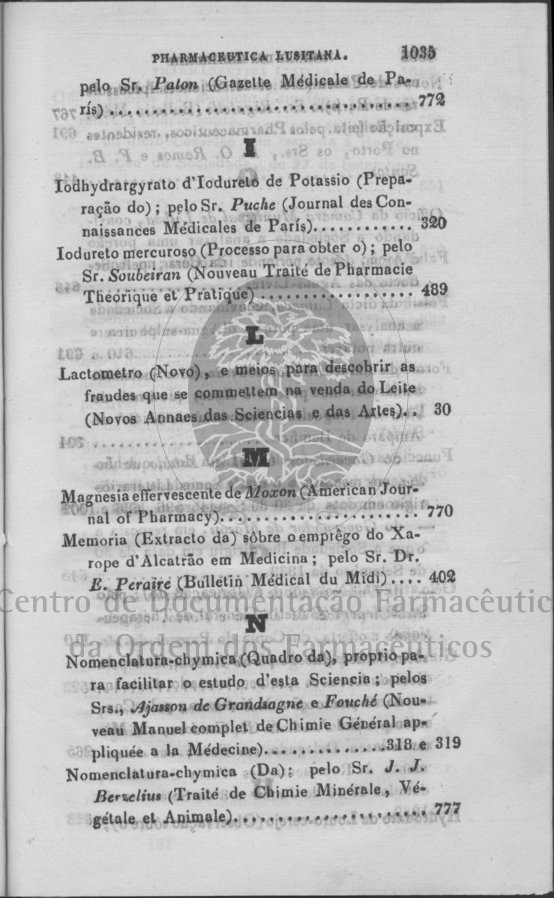 PHARMACEUTICA LUSITANA. 1035
pelo Sr. Paton (Gazette Médicale de Pa-
rís) 772
I
Iodhydrargyrato d'Iodureto de Potassio (Prepa-
ração do); pelo Sr. Puche (Journal des Con-
naissances Médicales de París) 320
Iodureto mercuroso (Processo para obter o); pelo
Sr. Soubeiran (Nouveau Traité de Pharmacie
Théorique et Pratique) 489
L
Lactometro (Novo), e meios para descobrir as
fraudes que se commettem na venda do Leite
(Novos Annaes das Sciencias e das Artes). 30
M
Magnesia effervescente de Moxon (American Jour-
nal of Pharmacy) 770
Memoria (Extracto da) sôbre o emprêgo do Xa-
rope d'Alcatrão em Medicina; pelo Sr. Dr.
E. Peraire (Bulletin Médical du Midi) 402
Centro de Documentação Farmacêutic
da Ordem dos Farmacêuticos
N
Nomenclatura-chymica (Quadro da), proprio pa-
ra facilitar o estudo d'esta Sciencia; pelos
Srs., Ajasson de Grandsagne e Fouché (Nou-
veau Manuel complet de Chimie Général ap-
pliquée a la Médecine) 318 e 319
Nomenclatura-chymica (Da); pelo Sr. J. J.
Berzelius (Traité de Chimie Minérale, Vé-
gétale et Animale) 777